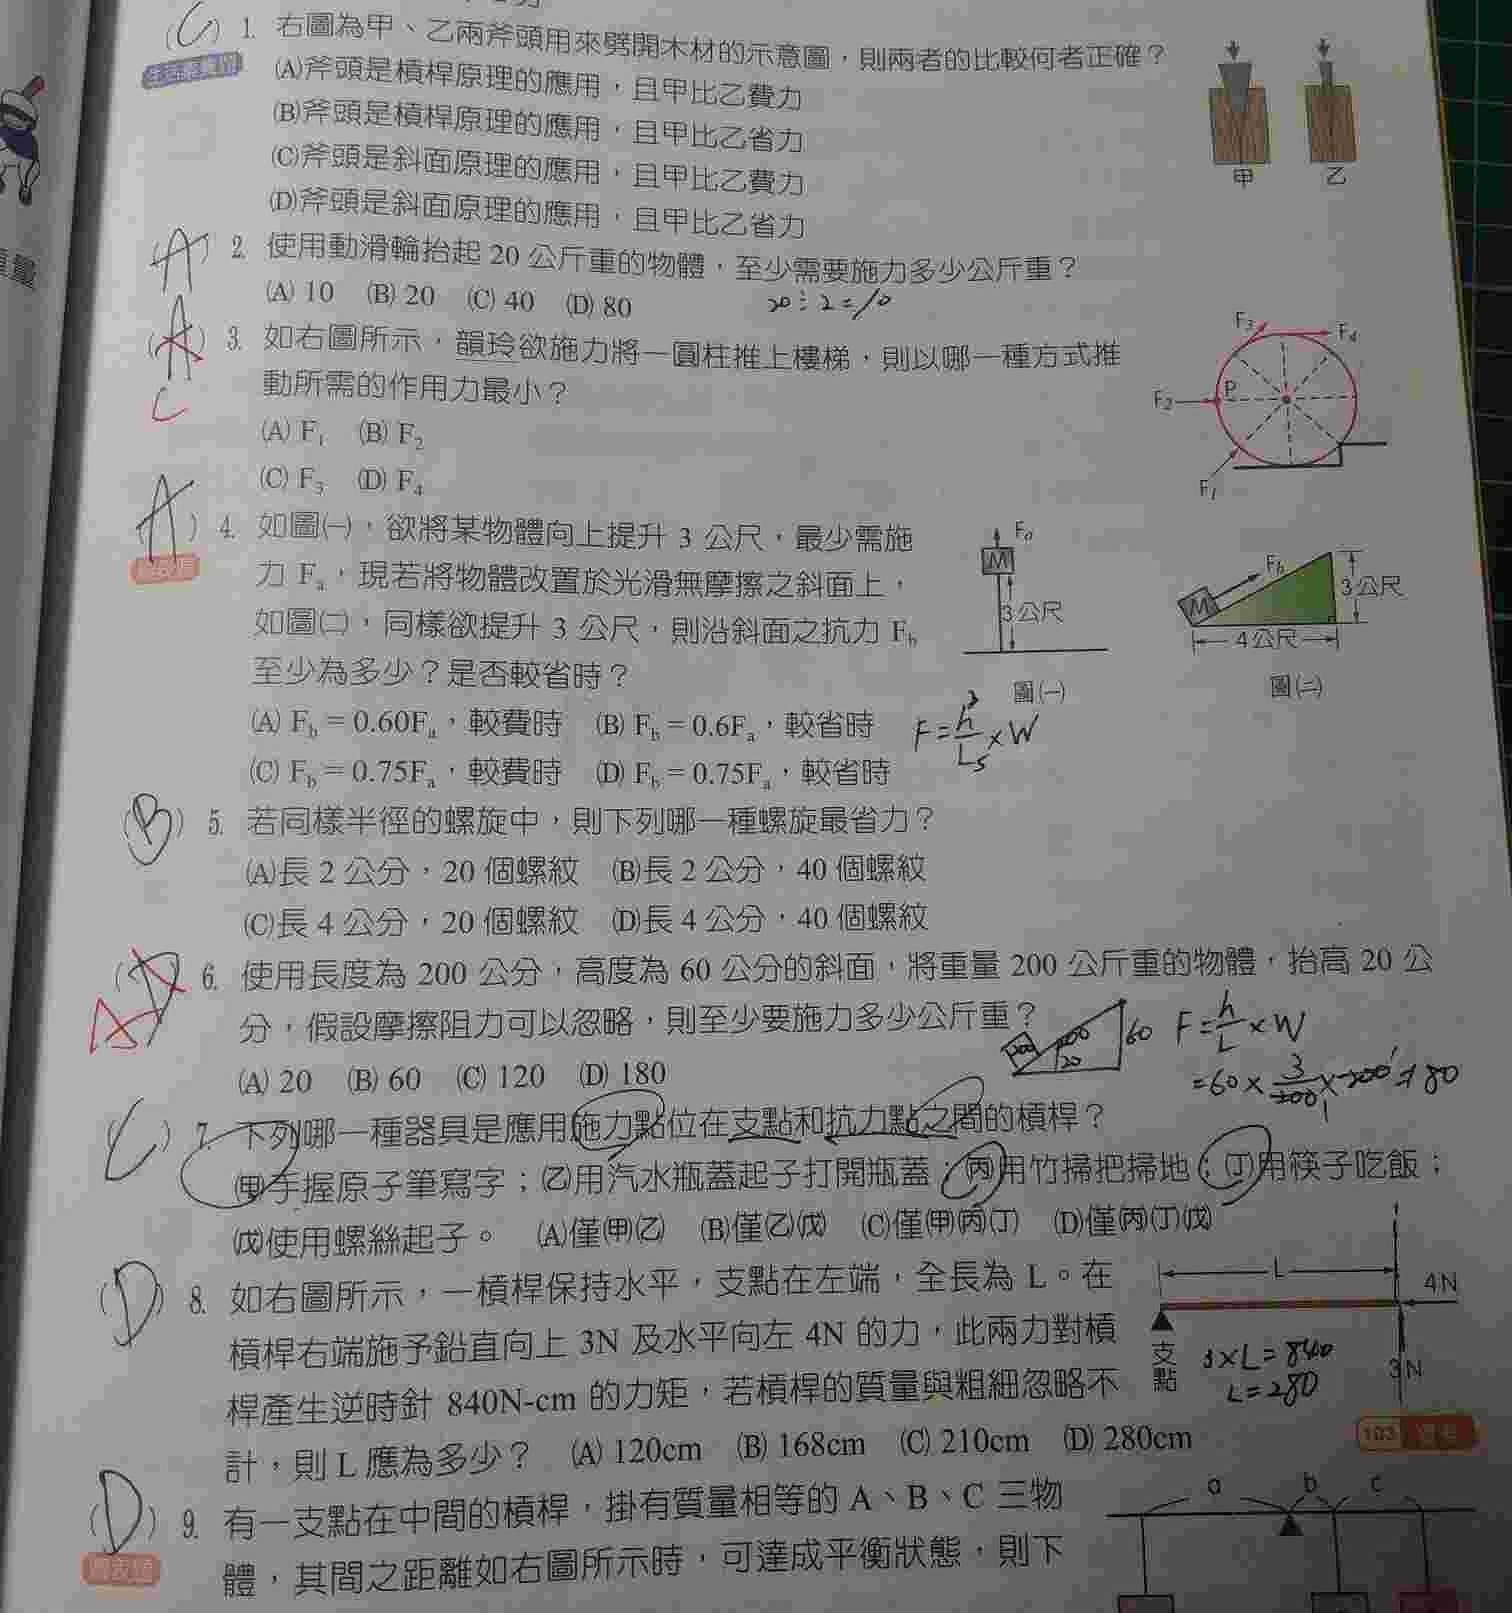 (C) 1. 右圖為甲、乙兩斧頭用來劈開木材的示意圖，則兩者的比較何者正確？
(A)斧頭是槓桿原理的應用，且甲比乙費力
(B)斧頭是槓桿原理的應用，且甲比乙省力
(C)斧頭是斜面原理的應用，且甲比乙費力
(D)斧頭是斜面原理的應用，且甲比乙省力
甲 乙
(A) 2. 使用動滑輪抬起 20 公斤重的物體，至少需要施力多少公斤重？
(A) 10 (B) 20 (C) 40 (D) 80
20÷2=10
(A) 3. 如右圖所示，韻玲欲施力將一圓柱推上樓梯，則以哪一種方式推
C
動所需的作用力最小？
(A) F₁ (B) F₂
(C) F₃ (D) F₄
F₃ F₄
F₂ P
F₁
(A) 4. 如圖㈠，欲將某物體向上提升 3 公尺，最少需施
力 Fa，現若將物體改置於光滑無摩擦之斜面上，
如圖㈡，同樣欲提升 3 公尺，則沿斜面之抗力 Fb
至少為多少？是否較省時？
(A) Fb = 0.60Fa，較費時 (B) Fb = 0.6Fa，較省時
(C) Fb = 0.75Fa，較費時 (D) Fb = 0.75Fa，較省時
Fa
M
3公尺
圖㈠
Fb
M
3公尺
4公尺
圖㈡
3
F=h/L×W
5
(B) 5. 若同樣半徑的螺旋中，則下列哪一種螺旋最省力？
(A)長 2 公分，20 個螺紋 (B)長 2 公分，40 個螺紋
(C)長 4 公分，20 個螺紋 (D)長 4 公分，40 個螺紋
6. 使用長度為 200 公分，高度為 60 公分的斜面，將重量 200 公斤重的物體，抬高 20 公
分，假設摩擦阻力可以忽略，則至少要施力多少公斤重？
(A) 20 (B) 60 (C) 120 (D) 180
200 20 60
F=h/L×W
(C) 7. 下列哪一種器具是應用施力點位在支點和抗力點之間的槓桿？
㈙手握原子筆寫字；㈚用汽水瓶蓋起子打開瓶蓋；㈛用竹掃把掃地；㈜用筷子吃飯；
㈝使用螺絲起子。 (A)僅㈙㈚ (B)僅㈚㈝ (C)僅㈙㈛㈜ (D)僅㈛㈜㈝
(D) 8. 如右圖所示，一槓桿保持水平，支點在左端，全長為 L。在
槓桿右端施予鉛直向上 3N 及水平向左 4N 的力，此兩力對槓
桿產生逆時針 840N-cm 的力矩，若槓桿的質量與粗細忽略不
計，則 L 應為多少？ (A) 120cm (B) 168cm (C) 210cm (D) 280cm
L
4N
支點
3N
3×L=840
L=280
103
(D) 9. 有一支點在中間的槓桿，掛有質量相等的 A、B、C 三物
體，其間之距離如右圖所示時，可達成平衡狀態，則下
a b c